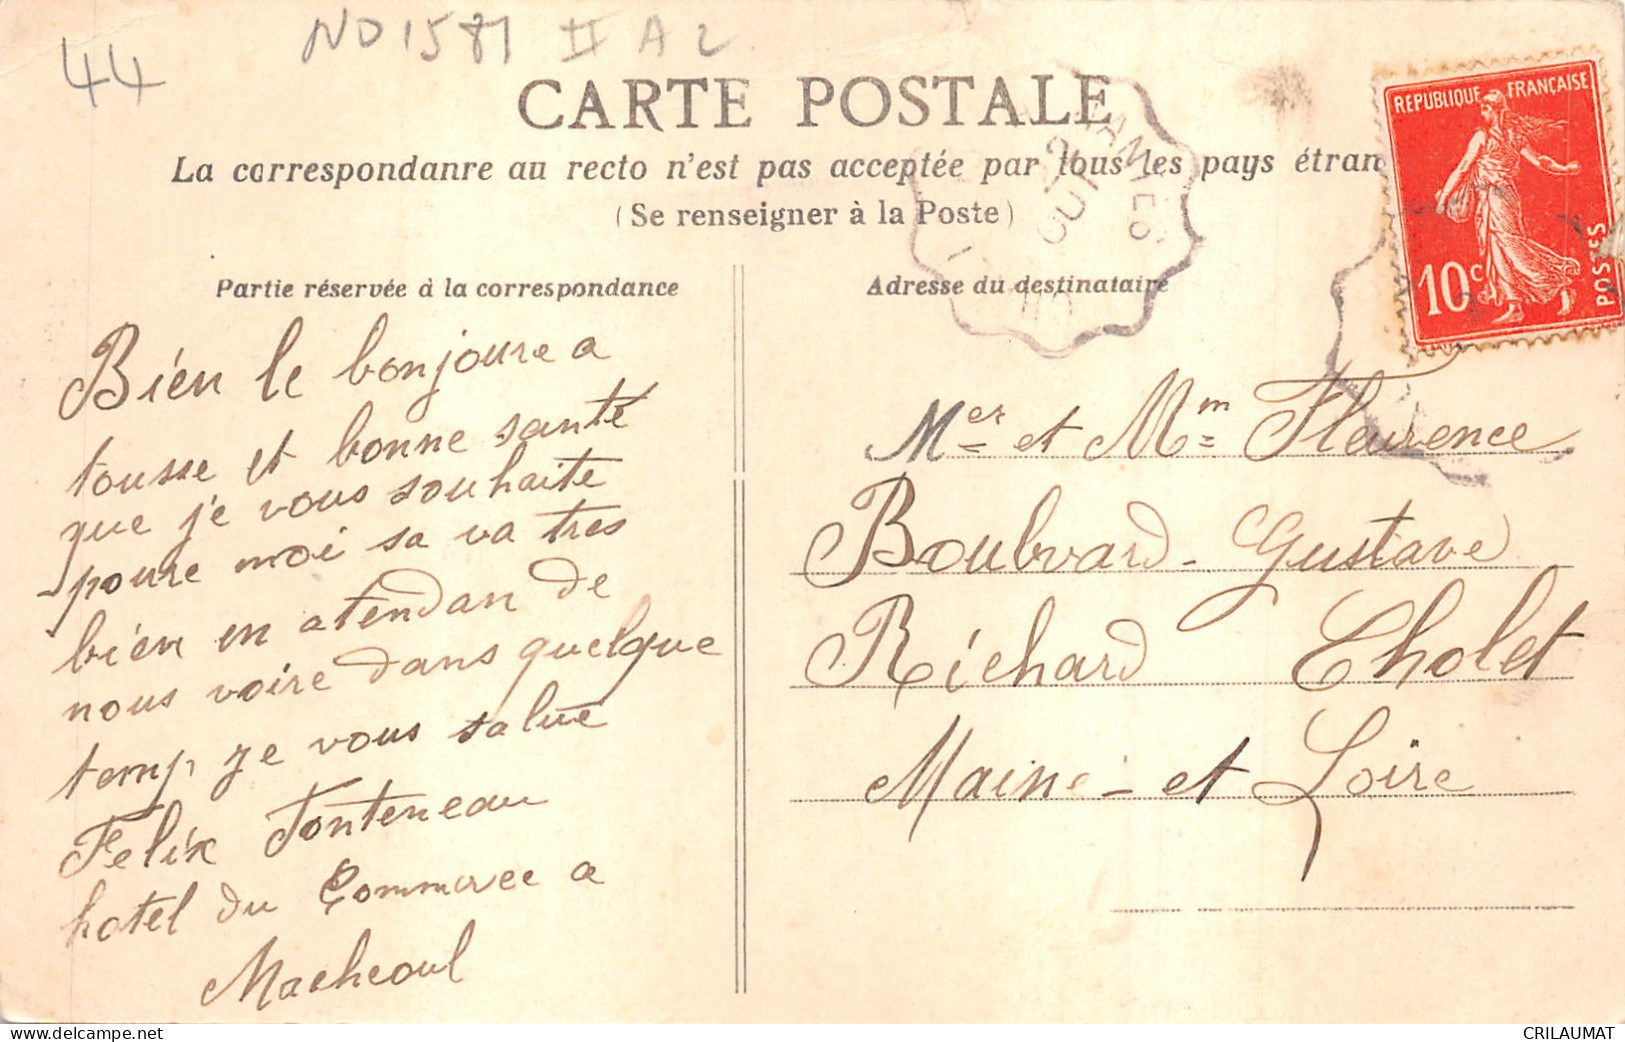 44
ND 1581 II A 2
CARTE POSTALE
La correspondanre au recto n'est pas acceptée par tous les pays étran
(Se renseigner à la Poste)
REPUBLIQUE FRANÇAISE
10c
POSTES
Partie réservée à la correspondance
Bien le bonjoure a
tousse et bonne santé
que je vous souhaite
poure moi sa va tres
bien en atendan de
nous voire dans quelque
temp je vous salue
Felix Fonteneau
hotel du Commerce a
Machcoul
Adresse du destinataire
Mer et Mm Fleurence
Boulvard Gustave
Richard Cholet
Maine-et Loire
www.delcampe.net
CRILAUMAT